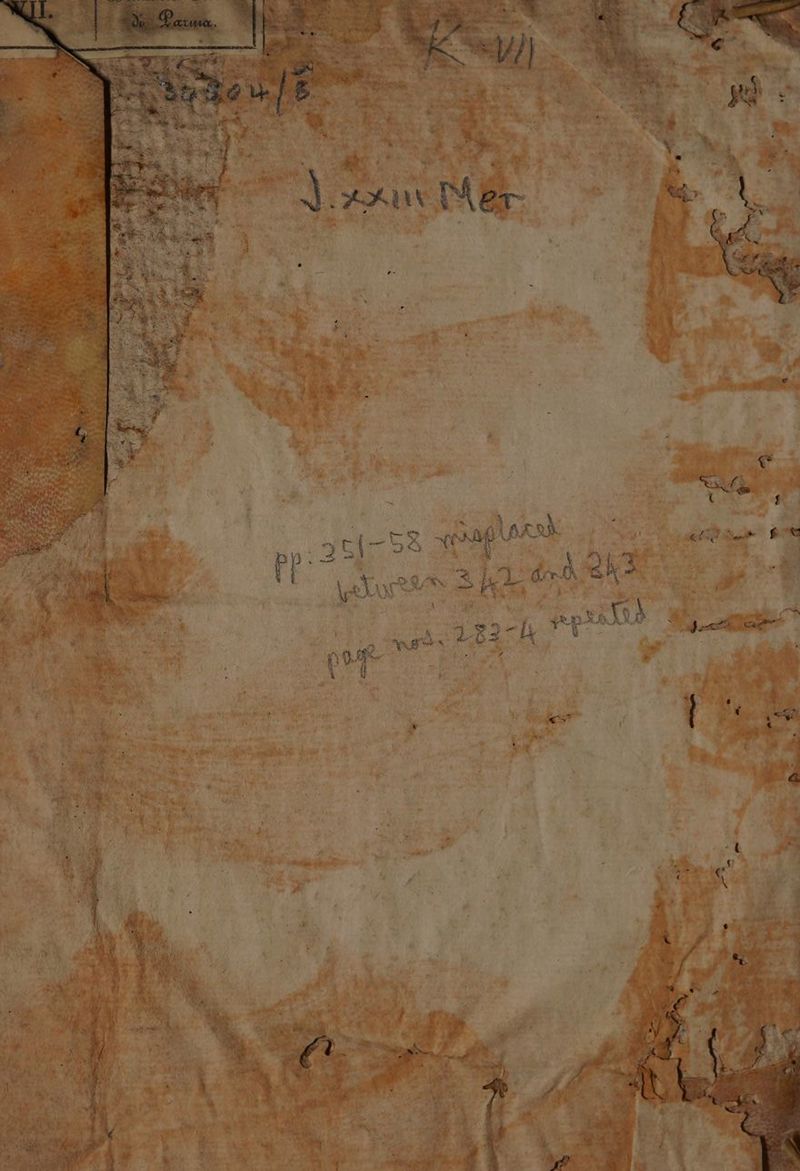 VII.
di Parma.
K VII
J.xxiii Mer
pp. 351-58 misplaced
between 342 and 343
page nos. 283-4 repeated